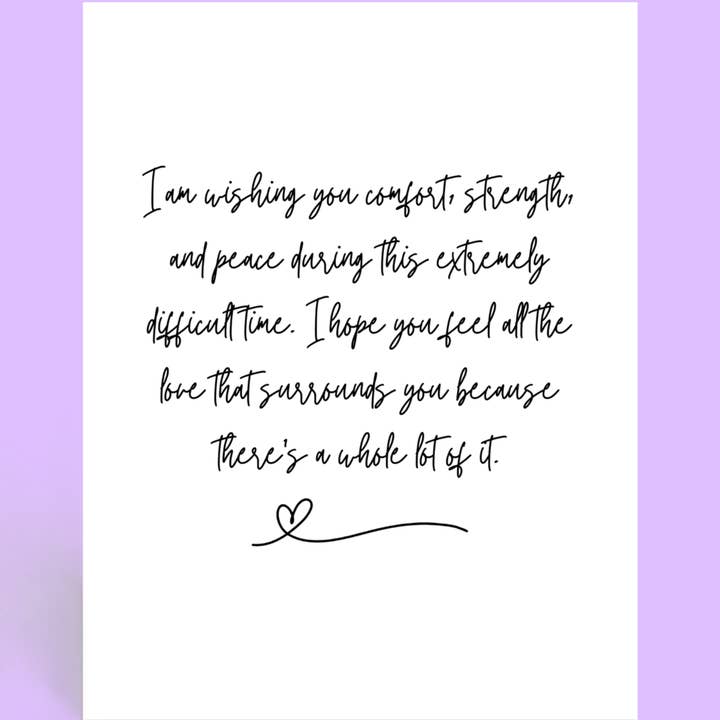 I am wishing you comfort, strength,
and peace during this extremely
difficult time. I hope you feel all the
love that surrounds you because
there's a whole lot of it.